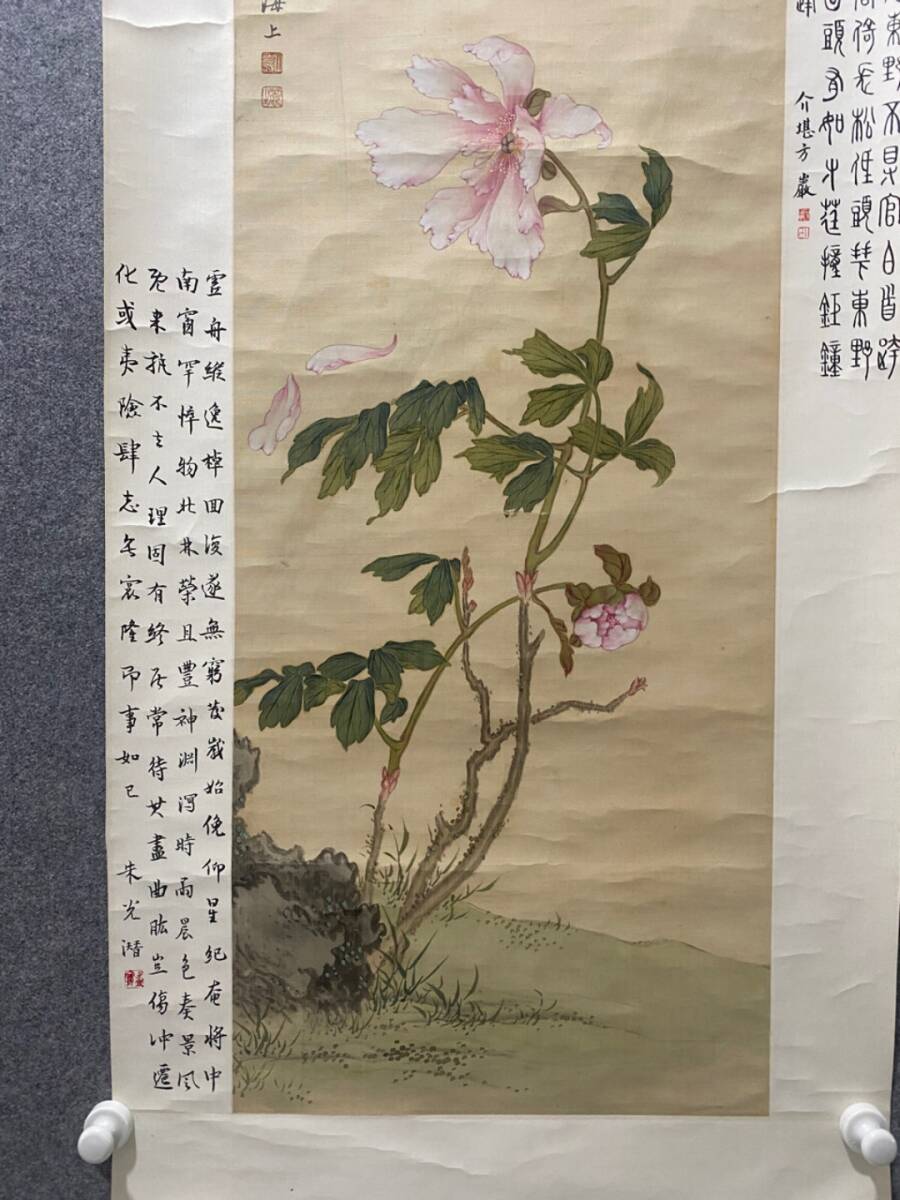 東野不得官白首誇
倚長松低頭拜東野
回頭有如寸莛撞鉅鐘
介堪方巖
海上
虛舟縱逸棹回復遂無窮發歲始俛仰星紀奄將中
南窗罕悴物北林榮且豐神淵瀉時雨晨色奏景風
既来孰不去人理固有終居常待其盡曲肱豈傷沖遷
化或夷險肆志無窊隆即事如已 朱光潛